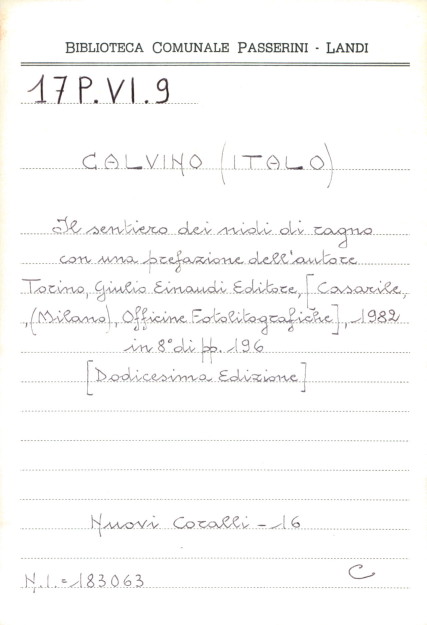 BIBLIOTECA COMUNALE PASSERINI - LANDI
17 P. VI. 9
CALVINO (ITALO)
Il sentiero dei nidi di ragno
con una prefazione dell'autore
Torino, Giulio Einaudi Editore, [Casarile,
(Milano), Officine Fotolitografiche], 1982
in 8° di pp. 196
[Dodicesima Edizione]
Nuovi Coralli - 16
N.I. = 183063
C